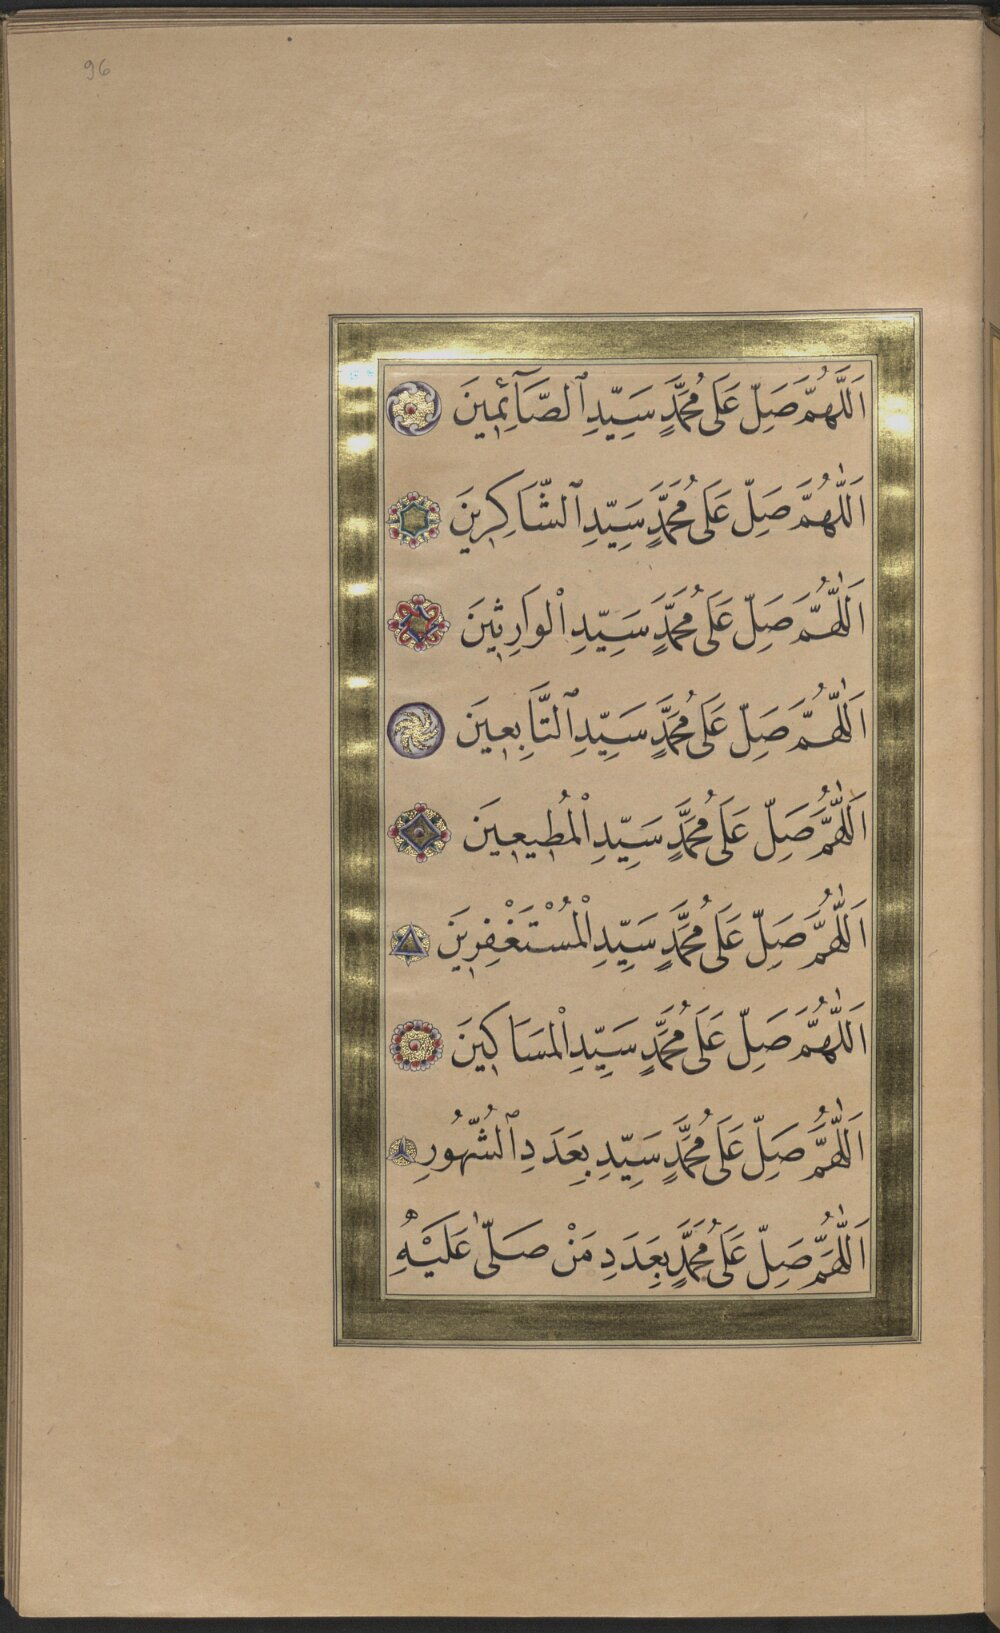 96
اَللَّهُمَّ صَلِّ عَلَى مُحَمَّدٍ سَيِّدِ ٱلصَّآئِمِينَ
اَللّٰهُمَّ صَلِّ عَلَى مُحَمَّدٍ سَيِّدِ ٱلشَّاكِرِينَ
اَللّٰهُمَّ صَلِّ عَلَى مُحَمَّدٍ سَيِّدِ الْوَارِثِينَ
اَللّٰهُمَّ صَلِّ عَلَى مُحَمَّدٍ سَيِّدِ ٱلتَّابِعِينَ
اَللّٰهُمَّ صَلِّ عَلَى مُحَمَّدٍ سَيِّدِ الْمُطِيعِينَ
اَللّٰهُمَّ صَلِّ عَلَى مُحَمَّدٍ سَيِّدِ الْمُسْتَغْفِرِينَ
اَللّٰهُمَّ صَلِّ عَلَى مُحَمَّدٍ سَيِّدِ الْمَسَاكِينَ
اَللّٰهُمَّ صَلِّ عَلَى مُحَمَّدٍ سَيِّدِ بِعَدَدِ ٱلشُّهُورِ
اَللّٰهُمَّ صَلِّ عَلَى مُحَمَّدٍ بِعَدَدِ مَنْ صَلّٰى عَلَيْهِ